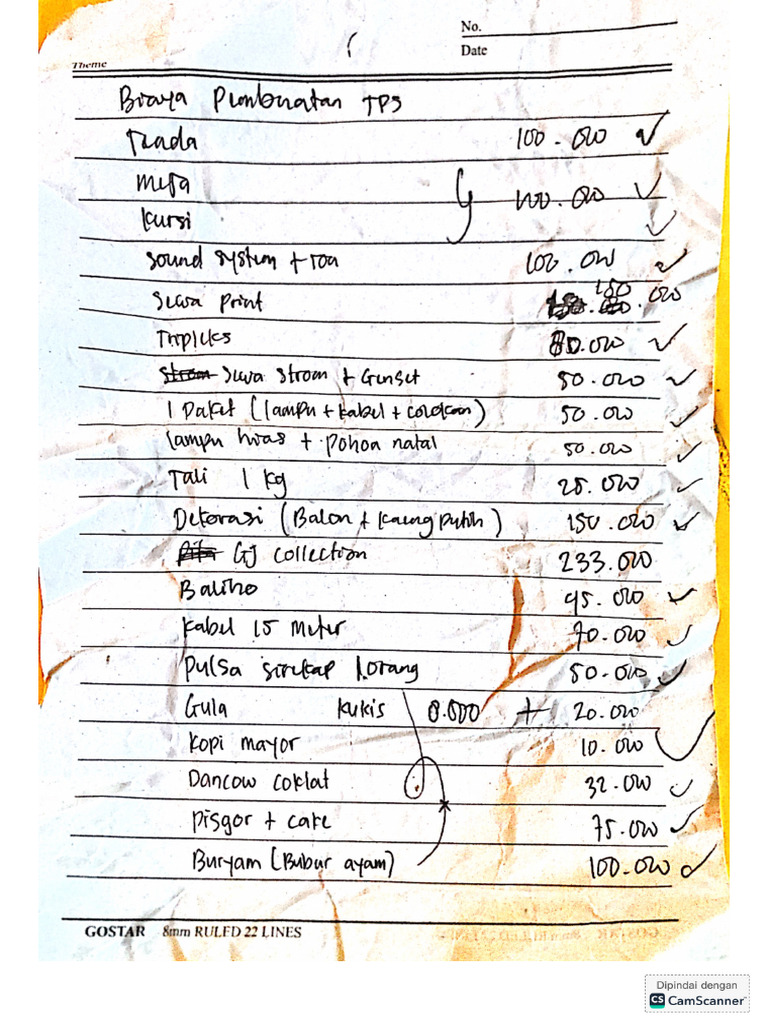 No.
Date
Theme
Biaya Pembuatan TPS
Tenda 100.000
Meja
100.000
Kursi
Sound system + toa 100.000
Sewa print 180.000
Tripleks 80.000
Sewa Strom + Genset 50.000
1 Paket (lampu + kabel + colokan) 50.000
lampu hias + pohon natal 50.000
Tali 1 kg 25.000
Dekorasi (Balon + Kaeng Putih) 150.000
GJ collection 233.000
Baliho 95.000
Kabel 15 Meter 70.000
Pulsa sirekap 1.orang 50.000
Gula kukis 8.000 + 20.000
Kopi mayor 10.000
Dancow coklat 32.000
Pisgor + cake 75.000
Buryam (Bubur ayam) 100.000
GOSTAR 8mm RULED 22 LINES
Dipindai dengan
CS CamScanner